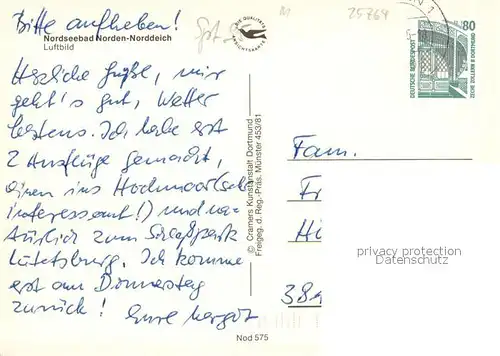 Bitte aufheben!
Nordseebad Norden-Norddeich
Luftbild
Herzliche Grüße, mir
geht's gut, Wetter
bestens. Ich habe erst
2 Ausflüge gemacht,
einen ins Hochmoor (sehr
interessant!) und na-
türlich zum Schloßpark
Lütetsburg. Ich komme
erst am Donnerstag
zurück! Eure Margot
Nod 575
© Cramers Kunstanstalt Dortmund
Freigeg. d. Reg.-Präs. Münster 453/81
DIE QUALITÄTS
ANSICHTSKARTE
25764
80
DEUTSCHE BUNDESPOST
ZECHE ZOLLERN II DORTMUND
Fam.
Fr
Hi
381
privacy protection
Datenschutz